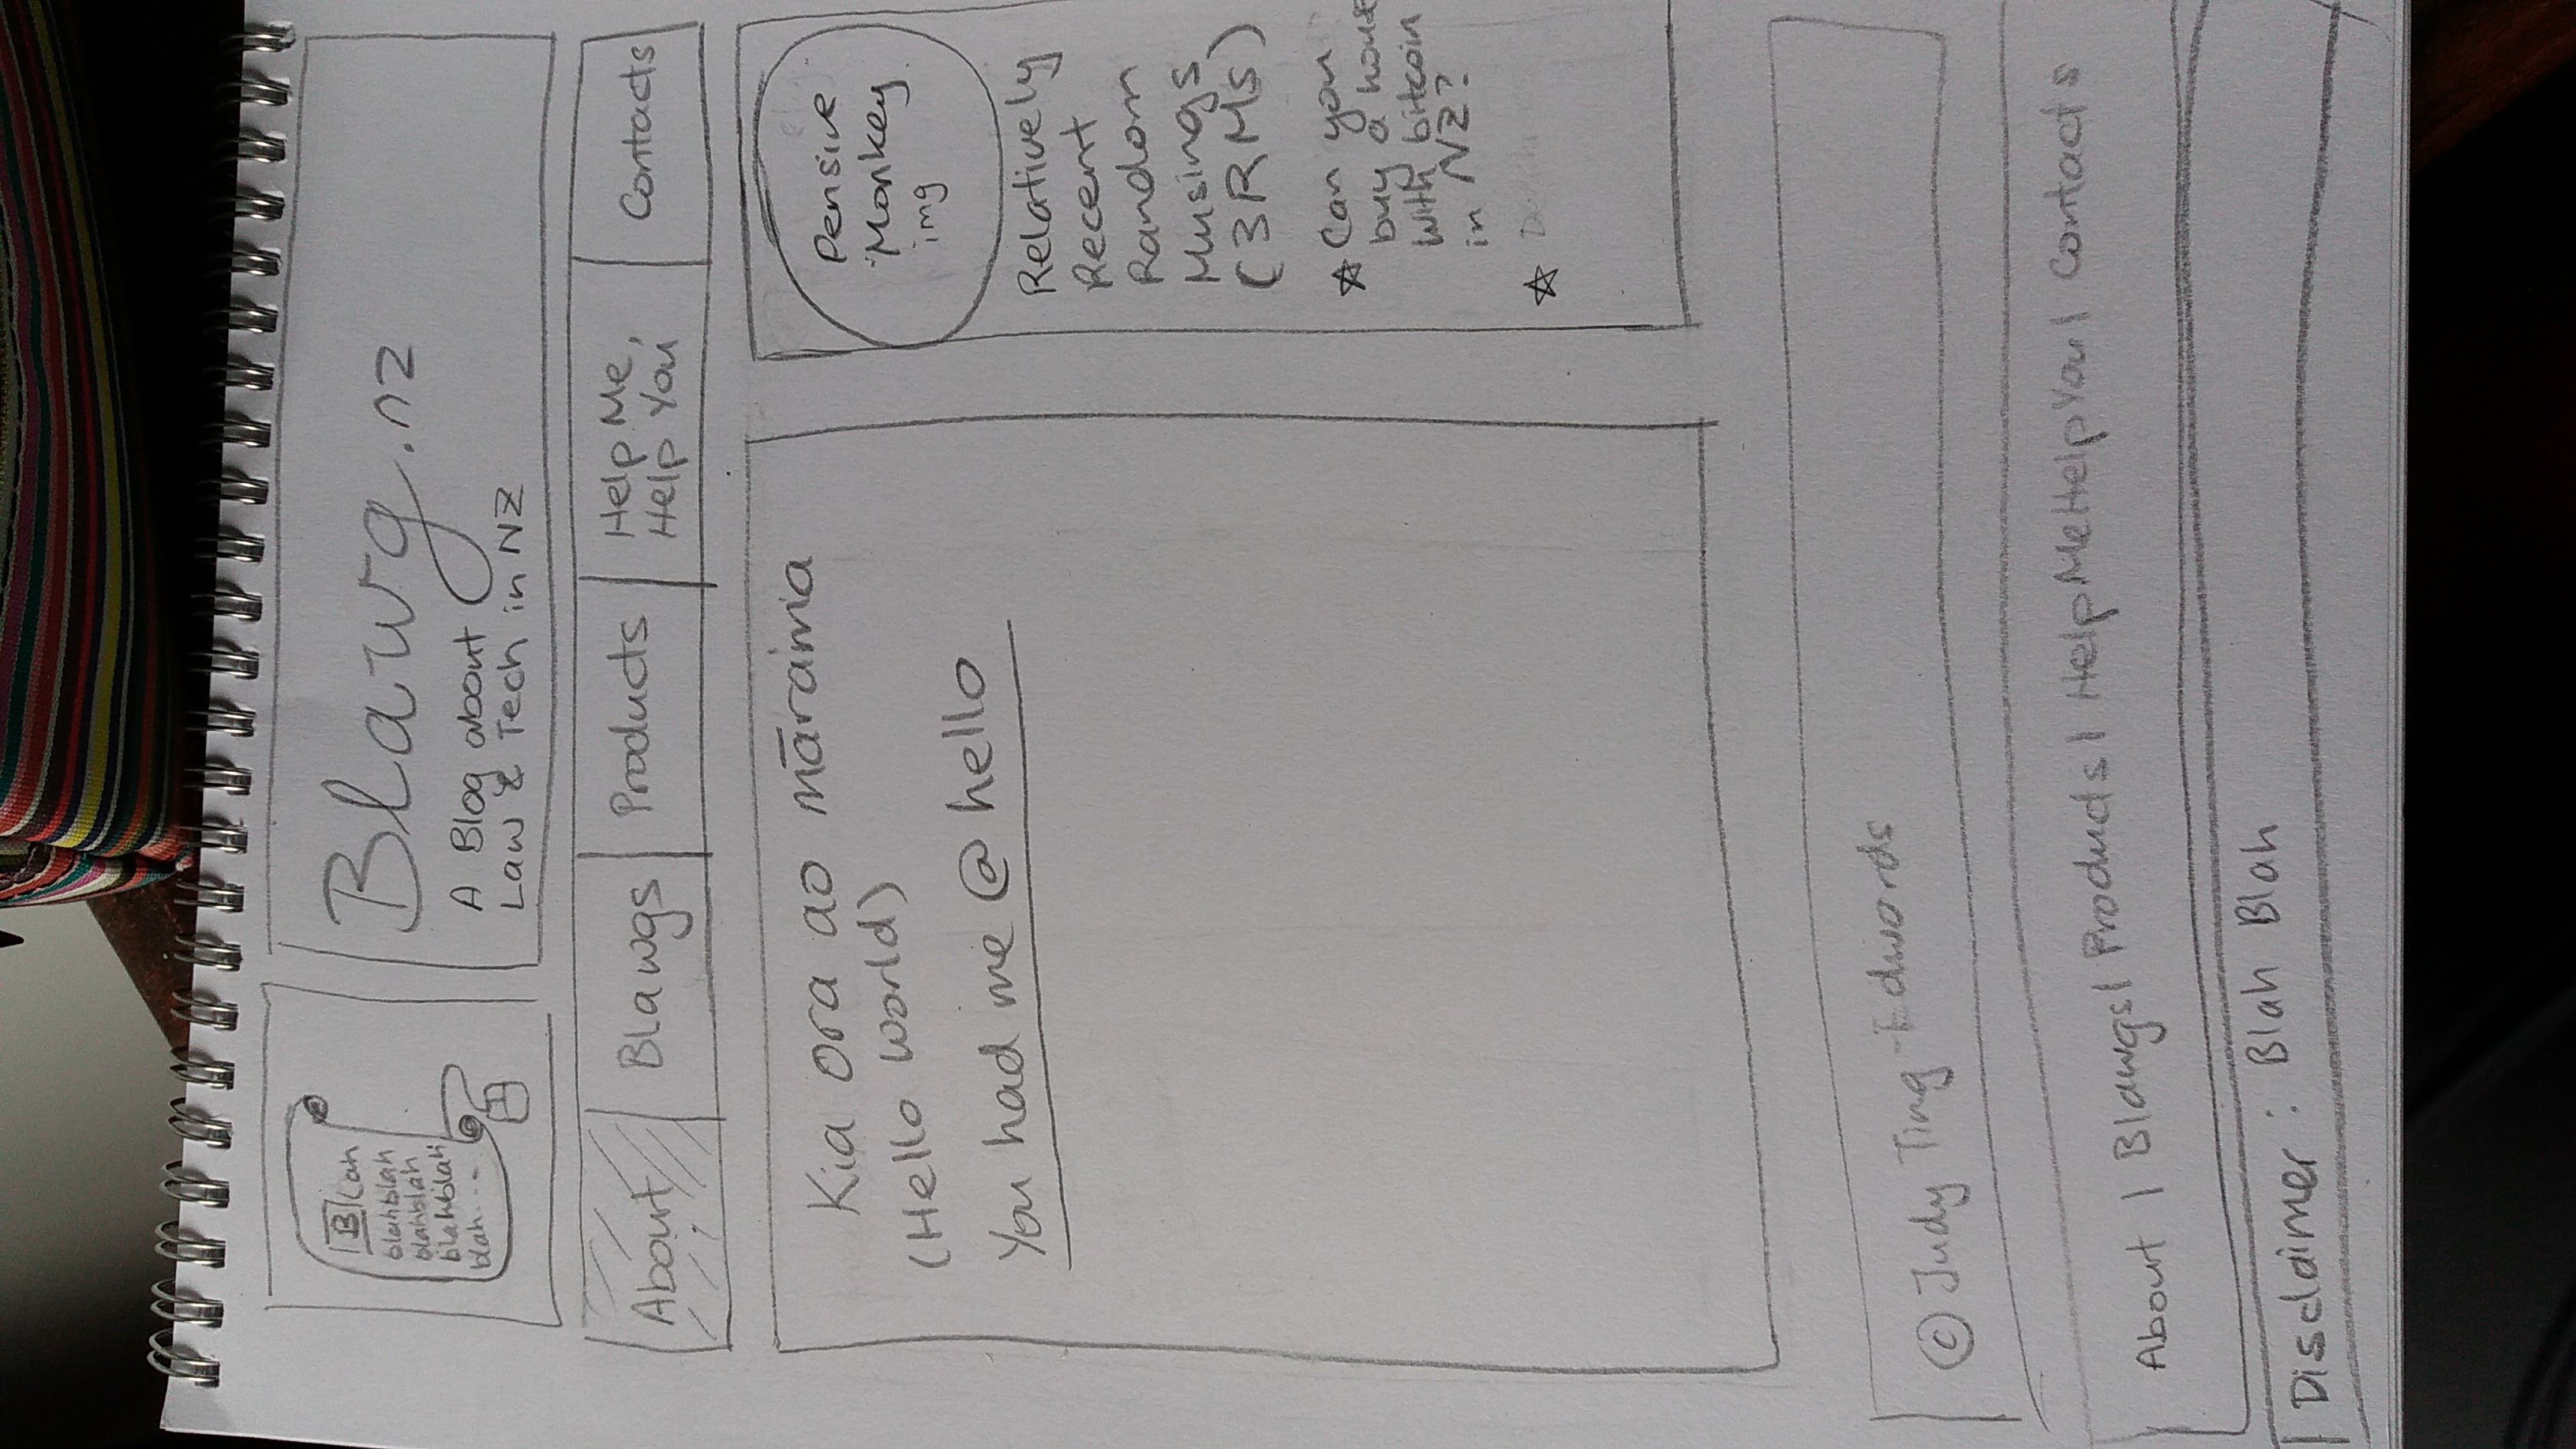 Blah
blahblah
blahblah
blahblah
blah....
Blawg.nz
A Blog about
Law & Tech in NZ
About
Blawgs
Products
Help Me,
Help You
Contacts
Kia ora ao mārama
(Hello World)
You had me @ hello
Pensive
Monkey
img
Relatively
Recent
Random
Musings
(3RMs)
☆ Can you
buy a house
with bitcoin
in NZ?
☆
© Judy Ting-Edwards
About | Blawgs | Products | HelpMeHelpYou | Contacts
Disclaimer : Blah Blah